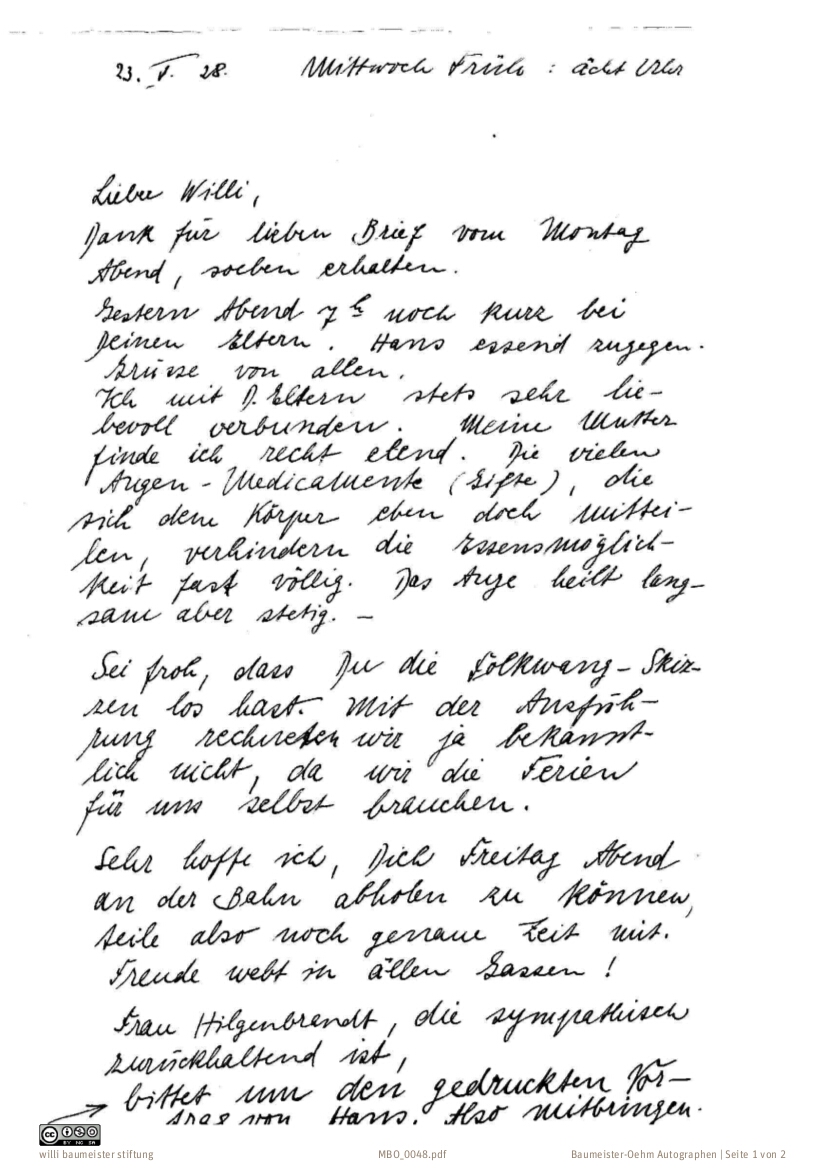 23. V. 28. Mittwoch Früh : ácht Uhr
Lieber Willi,
Dank für lieben Brief vom Montag
Abend, soeben erhalten.
Gestern Abend 7 h noch kurz bei
Deinen Eltern. Hans essend zugegen.
Grüsse von allen.
Ich mit D. Eltern stets sehr lie-
bevoll verbunden. Meine Mutter
finde ich recht elend. Die vielen
Augen-Medicamente (Gifte), die
sich dem Körper eben doch mittei-
len, verhindern die Essensmöglich-
keit fast völlig. Das Auge heilt lang-
sam aber stetig. –
Sei froh, dass Du die Folkwang-Skiz-
zen los hast. Mit der Ausfüh-
rung rechneten wir ja bekannt-
lich nicht, da wir die Ferien
für uns selbst brauchen.
Sehr hoffe ich, Dich Freitag Abend
an der Bahn abholen zu können,
teile also noch genaue Zeit mit.
Freude webt in állen Gassen!
Frau Hilgenbrandt, die sympathisch
zurückhaltend ist,
bittet um den gedruckten Vor-
von Hans. Also mitbringen.
CC BY NC SA
willi baumeister stiftung MBO_0048.pdf Baumeister-Oehm Autographen | Seite 1 von 2